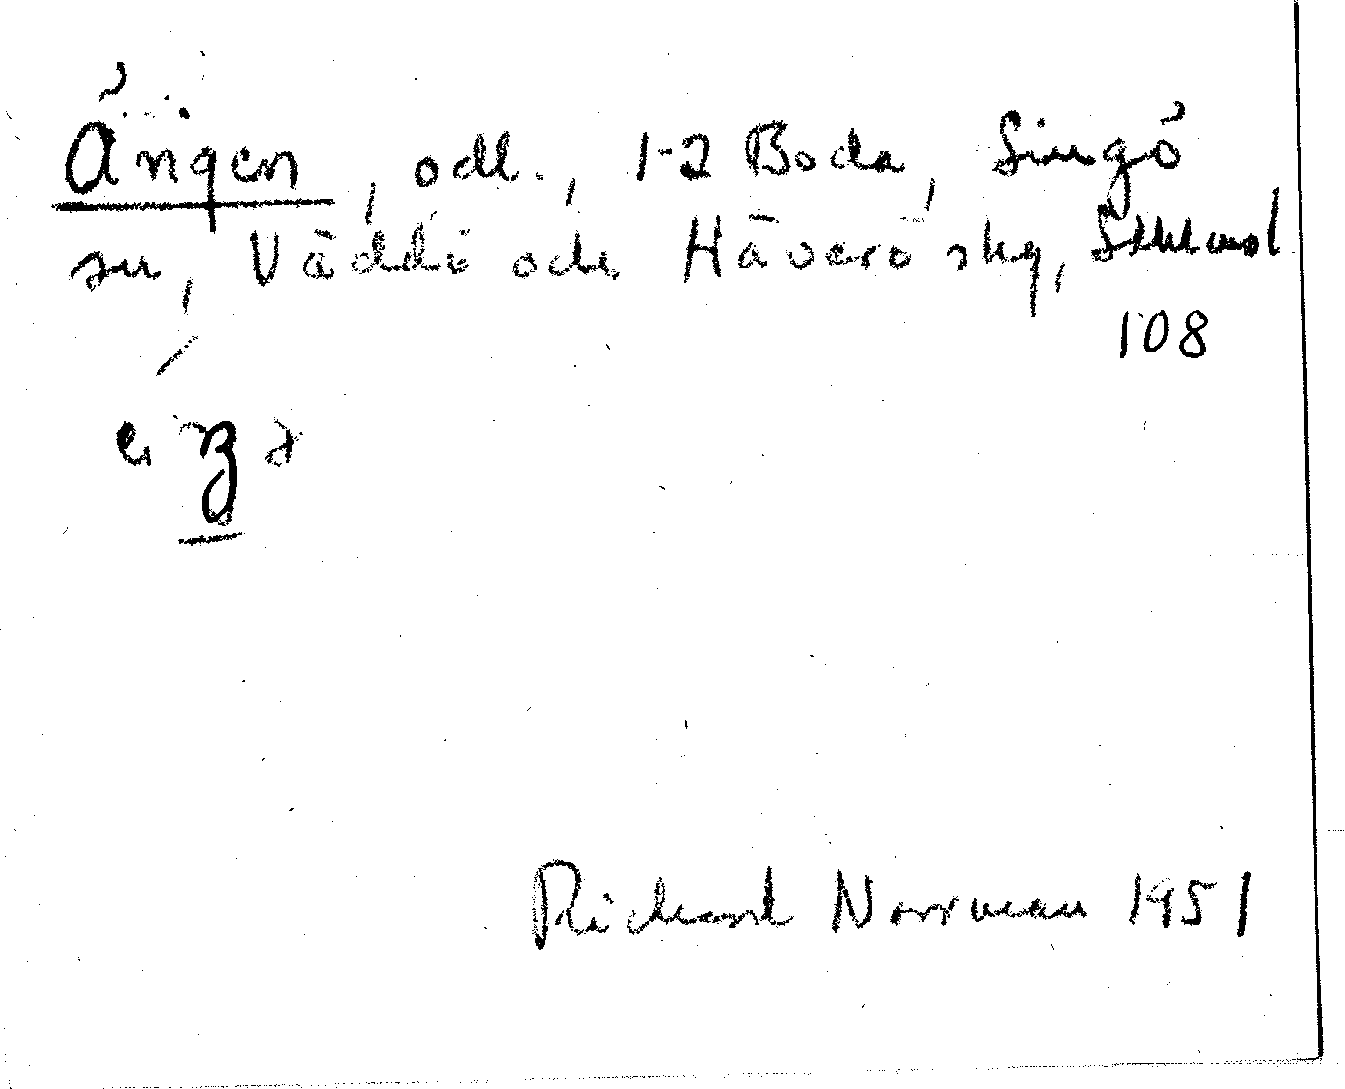 Ängen, odl., 1-2 Boda, Singö
sn, Väddö och Häverö skg, Sthlms l
108
Richard Norrman 1951